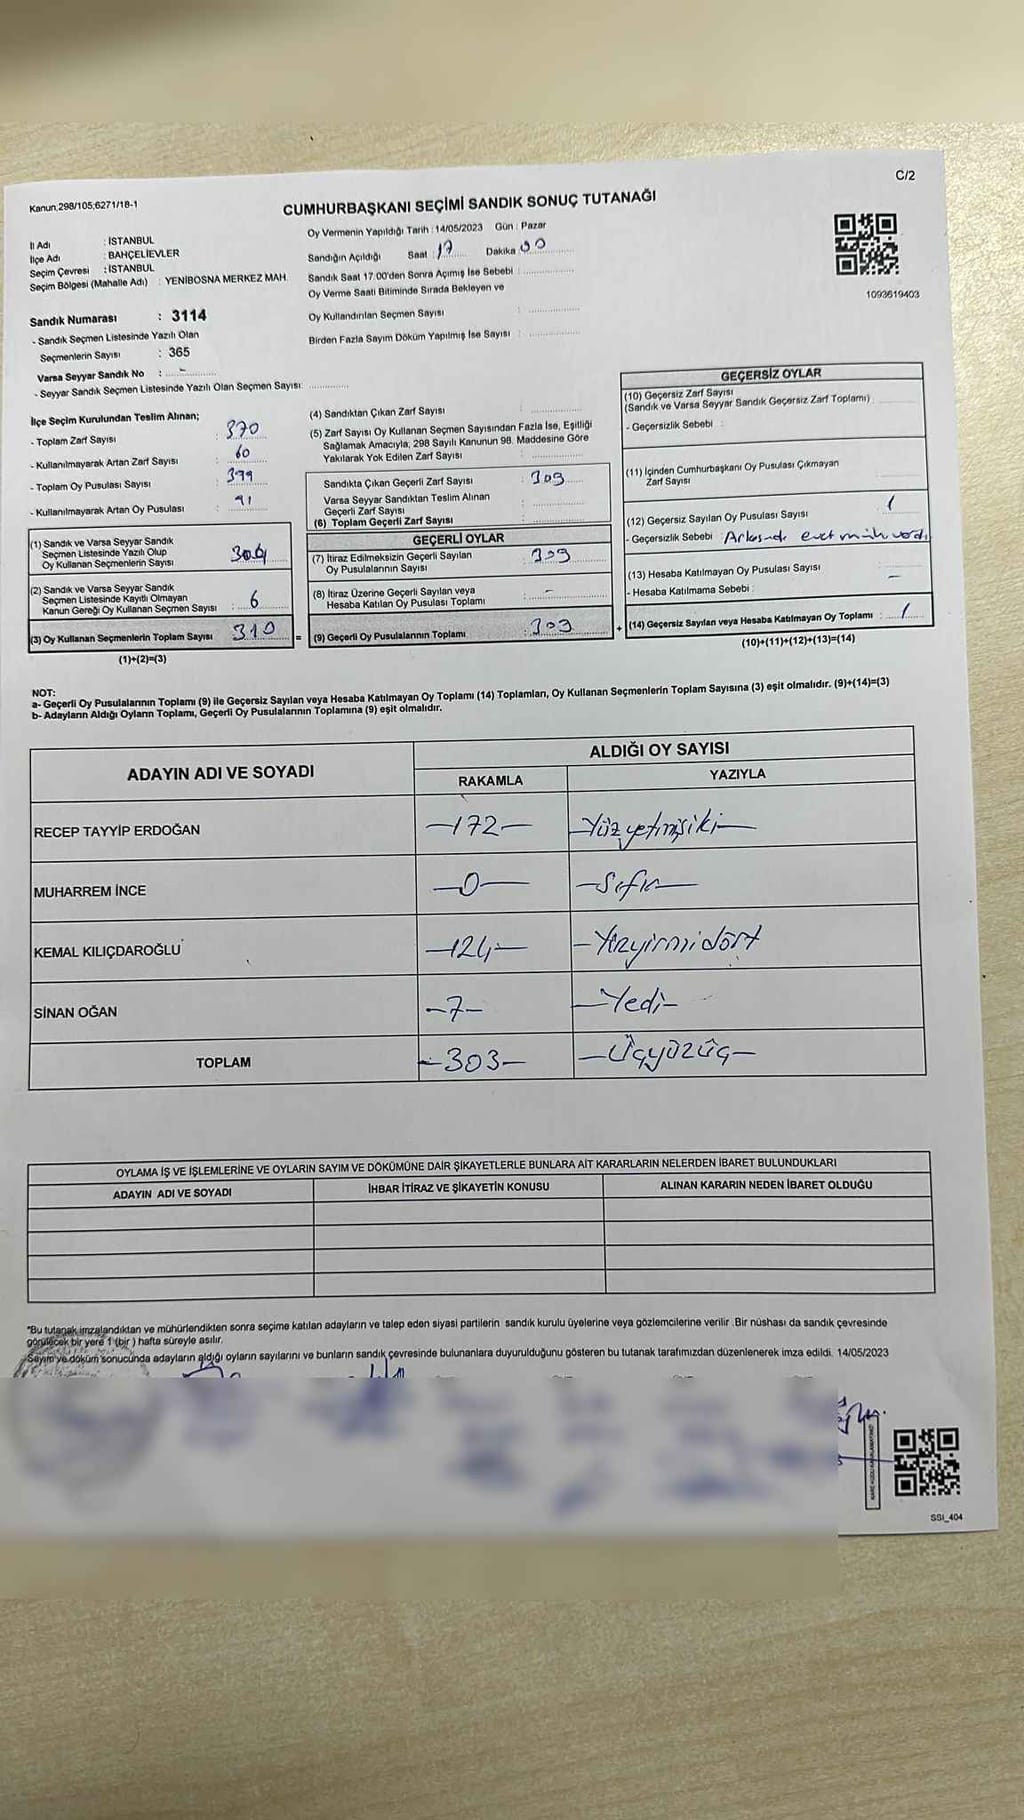 C/2
Kanun;298/105;6271/18-1
CUMHURBAŞKANI SEÇİMİ SANDIK SONUÇ TUTANAĞI
İl Adı : İSTANBUL
İlçe Adı : BAHÇELİEVLER
Seçim Çevresi : İSTANBUL
Seçim Bölgesi (Mahalle Adı) : YENİBOSNA MERKEZ MAH.
Oy Vermenin Yapıldığı Tarih : 14/05/2023 Gün : Pazar
Sandığın Açıldığı Saat : 17 Dakika
Sandık Saat 17.00'den Sonra Açımış İse Sebebi :
Oy Verme Saati Bitiminde Sırada Bekleyen ve
Oy Kullandırılan Seçmen Sayısı :
Birden Fazla Sayım Döküm Yapılmış İse Sayısı :
1093619403
Sandık Numarası : 3114
- Sandık Seçmen Listesinde Yazılı Olan
Seçmenlerin Sayısı : 365
Varsa Seyyar Sandık No : -
- Seyyar Sandık Seçmen Listesinde Yazılı Olan Seçmen Sayısı:
İlçe Seçim Kurulundan Teslim Alınan;
- Toplam Zarf Sayısı : 370
- Kullanılmayarak Artan Zarf Sayısı : 60
- Toplam Oy Pusulası Sayısı :
- Kullanılmayarak Artan Oy Pusulası : 91
(1) Sandık ve Varsa Seyyar Sandık
Seçmen Listesinde Yazılı Olup
Oy Kullanan Seçmenlerin Sayısı 304
(2) Sandık ve Varsa Seyyar Sandık
Seçmen Listesinde Kayıtlı Olmayan
Kanun Gereği Oy Kullanan Seçmen Sayısı : 6
(3) Oy Kullanan Seçmenlerin Toplam Sayısı 310 =
(1)+(2)=(3)
(4) Sandıktan Çıkan Zarf Sayısı :
(5) Zarf Sayısı Oy Kullanan Seçmen Sayısından Fazla İse, Eşitliği
Sağlamak Amacıyla; 298 Sayılı Kanunun 98. Maddesine Göre
Yakılarak Yok Edilen Zarf Sayısı :
Sandıkta Çıkan Geçerli Zarf Sayısı :
Varsa Seyyar Sandıktan Teslim Alınan
Geçerli Zarf Sayısı :
(6) Toplam Geçerli Zarf Sayısı :
GEÇERLİ OYLAR
(7) İtiraz Edilmeksizin Geçerli Sayılan
Oy Pusulalarının Sayısı :
(8) İtiraz Üzerine Geçerli Sayılan veya
Hesaba Katılan Oy Pusulası Toplamı : -
(9) Geçerli Oy Pusulalarının Toplamı : 303 +
GEÇERSİZ OYLAR
(10) Geçersiz Zarf Sayısı
(Sandık ve Varsa Seyyar Sandık Geçersiz Zarf Toplamı)
- Geçersizlik Sebebi :
(11) İçinden Cumhurbaşkanı Oy Pusulası Çıkmayan
Zarf Sayısı
(12) Geçersiz Sayılan Oy Pusulası Sayısı 1
- Geçersizlik Sebebi : Arkasında evet
(13) Hesaba Katılmayan Oy Pusulası Sayısı -
- Hesaba Katılmama Sebebi :
(14) Geçersiz Sayılan veya Hesaba Katılmayan Oy Toplamı : 1
(10)+(11)+(12)+(13)=(14)
NOT:
a- Geçerli Oy Pusulalarının Toplamı (9) ile Geçersiz Sayılan veya Hesaba Katılmayan Oy Toplamı (14) Toplamları, Oy Kullanan Seçmenlerin Toplam Sayısına (3) eşit olmalıdır. (9)+(14)=(3)
b- Adayların Aldığı Oyların Toplamı, Geçerli Oy Pusulalarının Toplamına (9) eşit olmalıdır.
ADAYIN ADI VE SOYADI
ALDIĞI OY SAYISI
RAKAMLA YAZIYLA
RECEP TAYYİP ERDOĞAN -172- -Yüzyetmişiki-
MUHARREM İNCE -0- -Sıfır-
KEMAL KILIÇDAROĞLU -124- -Yüzyirmidört
SİNAN OĞAN -7- -Yedi-
TOPLAM -303- -Üçyüzüç-
OYLAMA İŞ VE İŞLEMLERİNE VE OYLARIN SAYIM VE DÖKÜMÜNE DAİR ŞİKAYETLERLE BUNLARA AİT KARARLARIN NELERDEN İBARET BULUNDUKLARI
ADAYIN ADI VE SOYADI İHBAR İTİRAZ VE ŞİKAYETİN KONUSU ALINAN KARARIN NEDEN İBARET OLDUĞU
*Bu tutanak imzalandıktan ve mühürlendikten sonra seçime katılan adayların ve talep eden siyasi partilerin sandık kurulu üyelerine veya gözlemcilerine verilir .Bir nüshası da sandık çevresinde
görülecek bir yere 1 (bir ) hafta süreyle asılır.
Sayım ve döküm sonucunda adayların aldığı oyların sayılarını ve bunların sandık çevresinde bulunanlara duyurulduğunu gösteren bu tutanak tarafımızdan düzenlenerek imza edildi. 14/05/2023
SSI_404